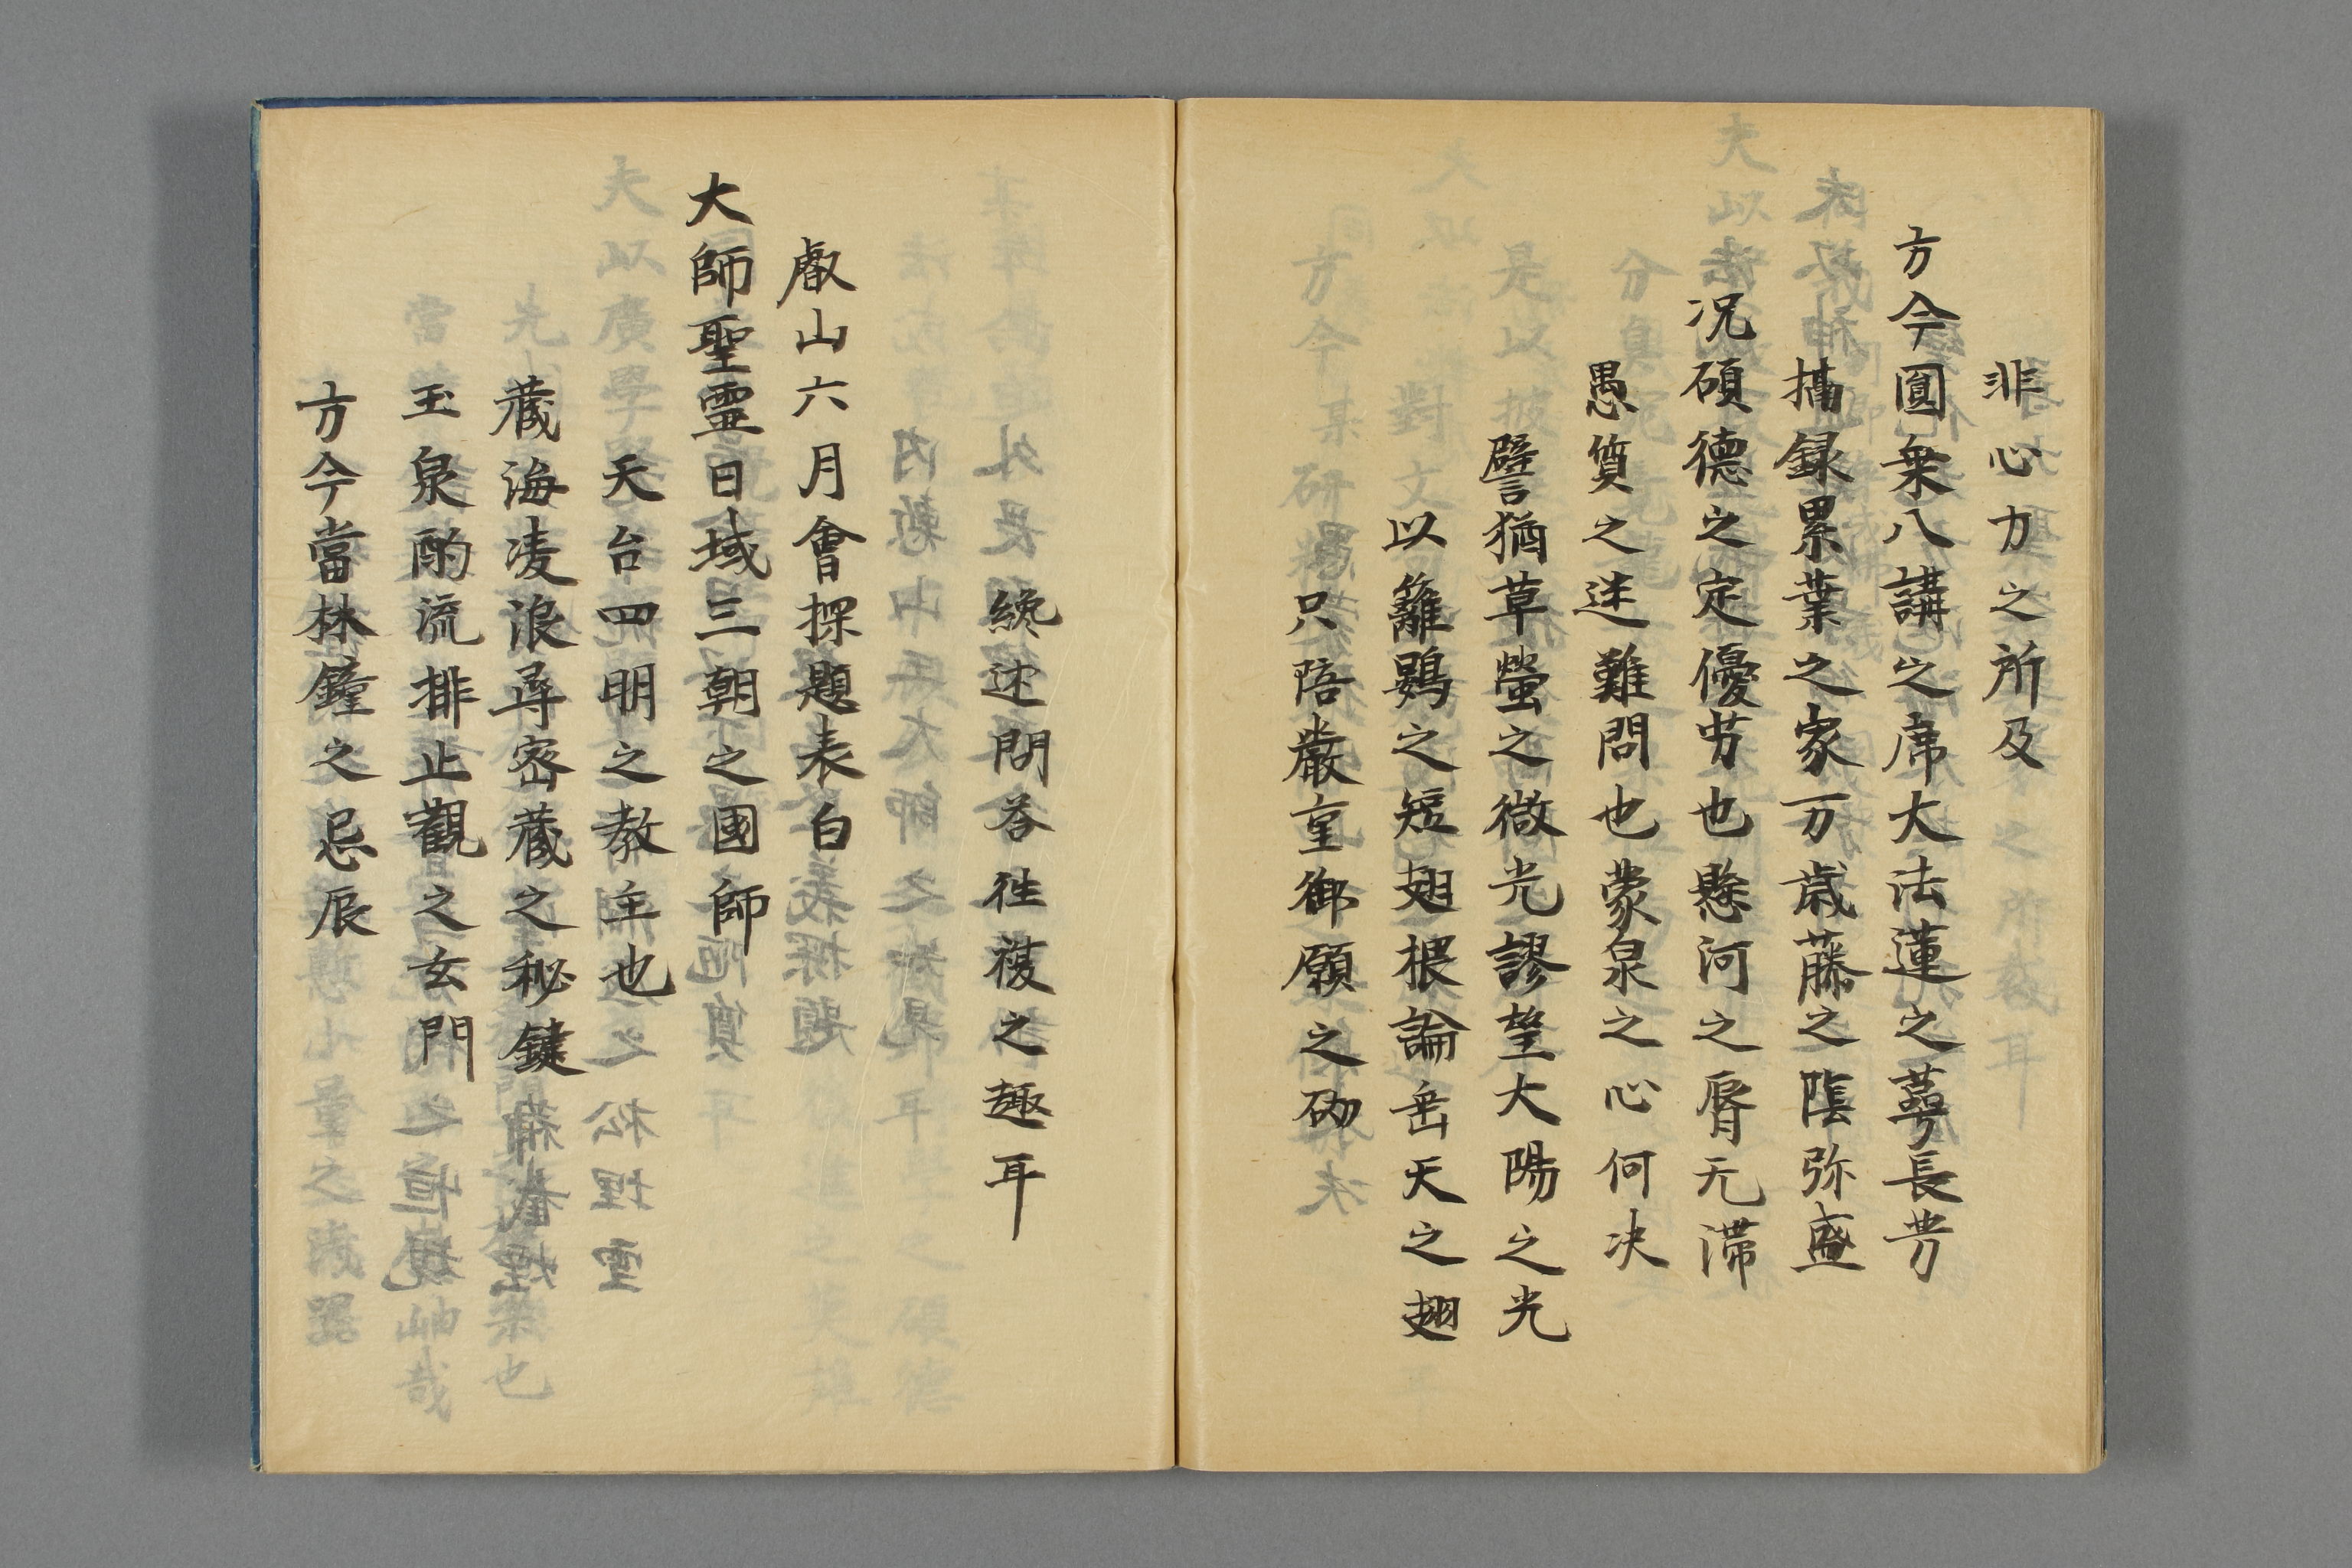 非心力之所及
方今圓乗八講之席大法蓮之萼長芳
摂録累葉之家万歳藤之蔭弥盛
况碩德之定優劣也懸河之脣无滞
愚質之迷難問也蒙泉之心何决
譬猶草螢之微光謬望大陽之光
以籬鷃之短翅猥論垂天之翅
只陪嚴重御願之砌
纔述問荅徃複之趣耳
叡山六月會探題表白
大師聖霊日域三朝之國師
天台四明之教主也
蔵海凌浪尋密蔵之秘鍵
玉泉酌流排止觀之玄門
方今當林鐘之忌辰